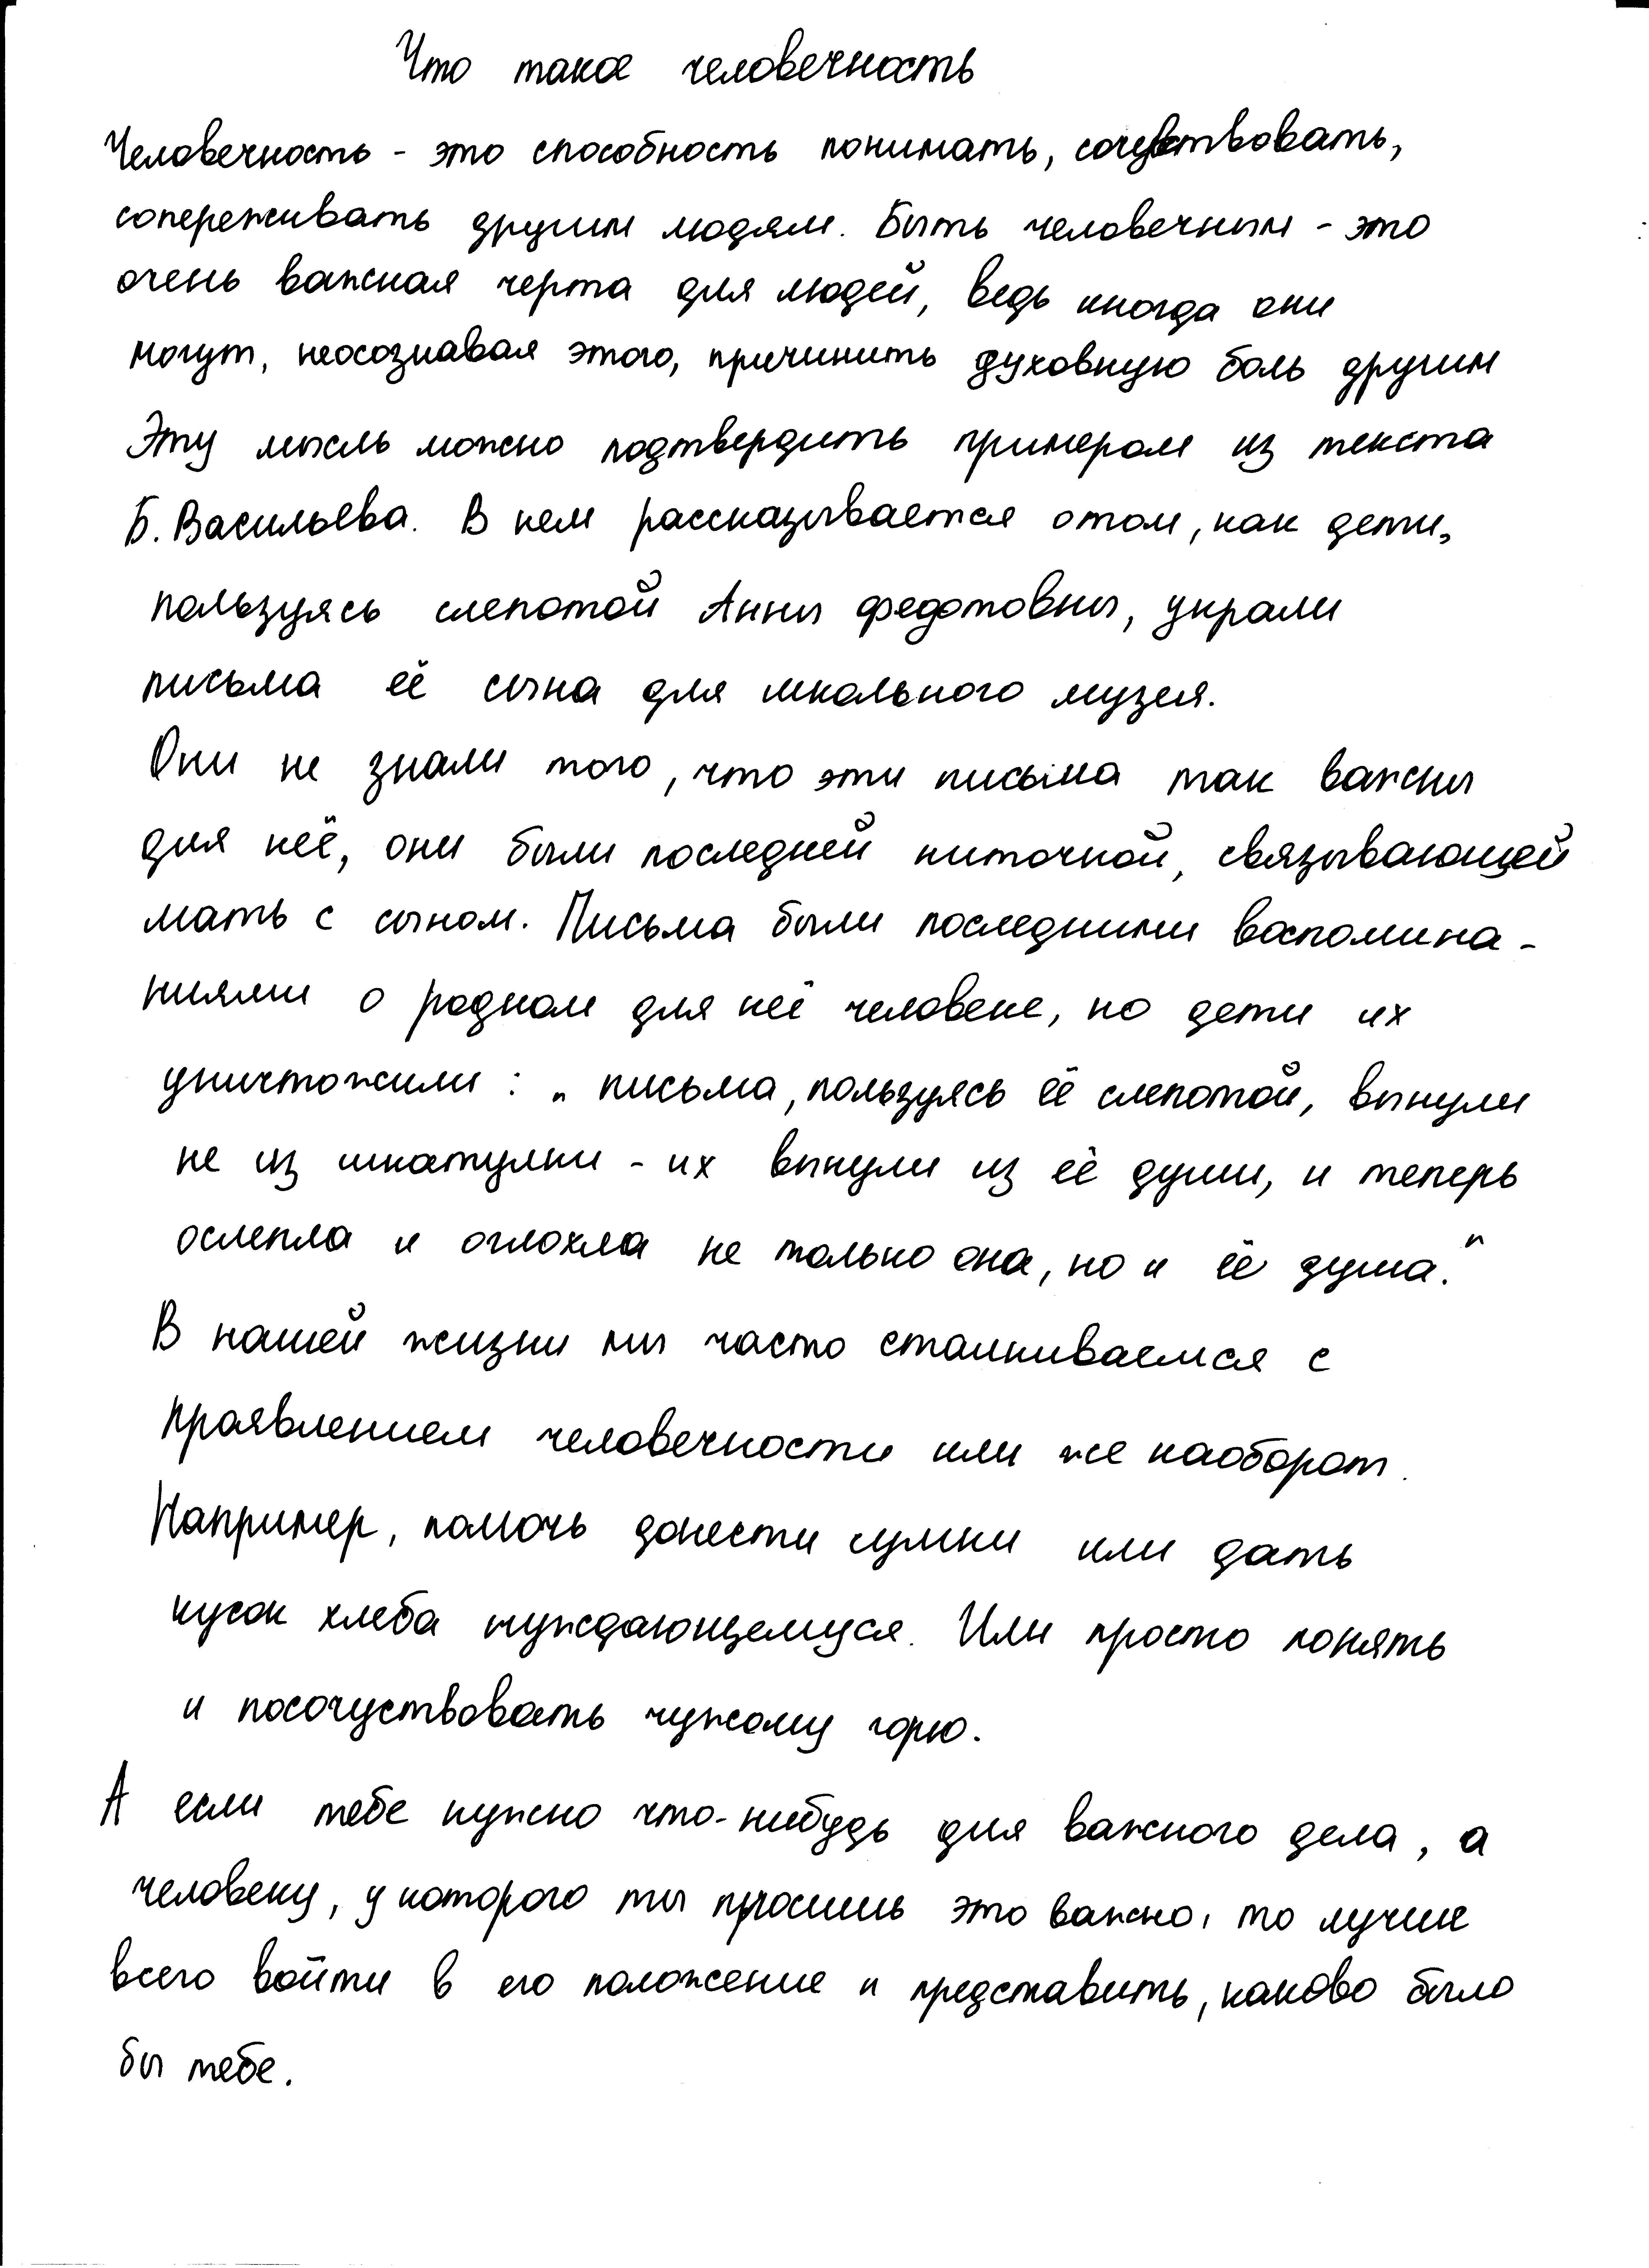 Что такое человечность
Человечность - это способность понимать, сочувствовать,
сопереживать другим людям. Быть человечным - это
очень важная черта для людей, ведь иногда они
могут, неосознавая этого, причинить духовную боль другим
Эту мысль можно подтвердить примером из текста
Б. Васильева. В нем рассказывается отом, как дети,
пользуясь слепотой Анны федотовны, украли
письма её сына для школьного музея.
Они не знали того, что эти письма так важны
для неё, они были последней ниточкой, связывающей
мать с сыном. Письма были последними воспомина-
ниями о родном для неё человеке, но дети их
уничтожили: „ письма, пользуясь её слепотой, вынули
не из шкатулки - их вынули из её души, и теперь
ослепла и оглохла не только она, но и её душа."
В нашей жизни мы часто сталкиваемся с
проявлением человечности или же наоборот.
Например, помочь донести сумки или дать
кусок хлеба нуждающемуся. Или просто понять
и посочуствовать чужому горю.
А если тебе нужно что-нибудь для важного дела, а
человеку, у которого ты просишь это важно, то лучше
всего войти в его положение и представить, каково было
бы тебе.